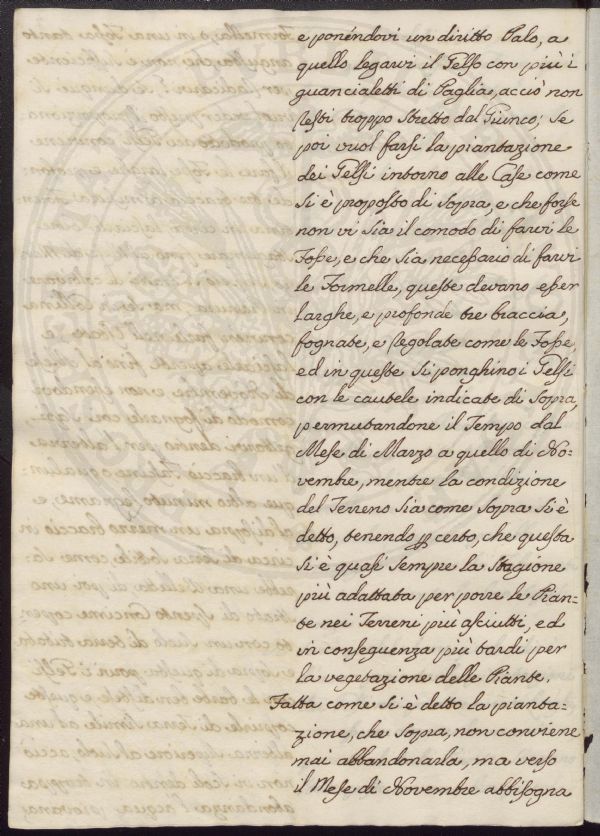 e ponéndovi un diritto Palo, a
quello legarvi il Gelso con più i
guancialetti di Paglia, acciò non
resti troppo stretto dal Giunco; se
poi vuol farsi la piantazione
dei Gelsi intorno alle Case come
si è proposto di sopra, e che forse
non vi sia il comodo di farvi le
Fosse, e che sia necessario di farvi
le Formelle, queste devano esser
larghe, e profonde tre braccia,
fognate, e regolate come le Fosse,
ed in queste si ponghino i Gelsi
con le cautele indicate di sopra,
permutandone il Tempo dal
Mese di Marzo a quello di No=
vembre, mentre la condizione
del Terreno sia come sopra si è
detto, tenendo p certo, che questa
si è quasi sempre la Stagione
più adattata per porre le Pian=
te nei Terreni più asciutti, ed
in conseguenza più tardi per
la vegetazione delle Piante.
Fatta come si è detto la pianta=
zione, che sopra, non conviene
mai abbandonarla, ma verso
il Mese di Novembre abbisogna